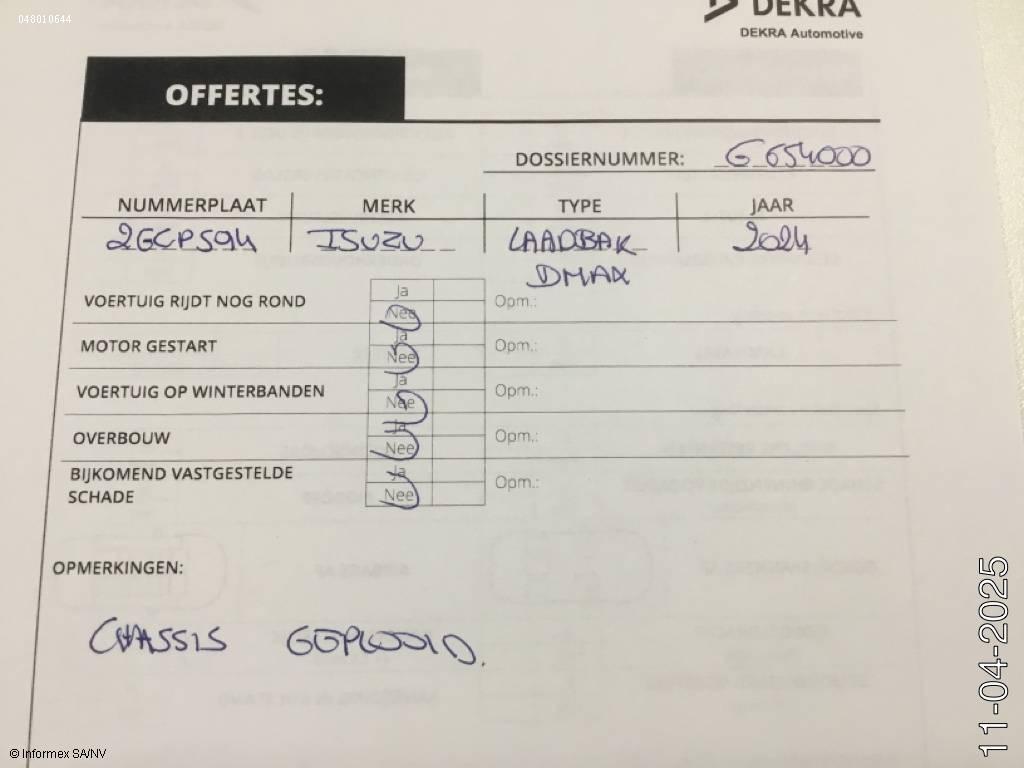 048010644
DEKRA
DEKRA Automotive
OFFERTES:
DOSSIERNUMMER: G 654000
NUMMERPLAAT MERK TYPE JAAR
2GCP594 ISUZU LAADBAK 2024
DMAX
VOERTUIG RIJDT NOG ROND Ja Opm.:
Nee
MOTOR GESTART Ja Opm.:
Nee
VOERTUIG OP WINTERBANDEN Ja Opm.:
Nee
OVERBOUW Ja Opm.:
Nee
BIJKOMEND VASTGESTELDE Ja Opm.:
SCHADE Nee
OPMERKINGEN:
CHASSIS GEPLOOID.
11-04-2025
© Informex SA/NV